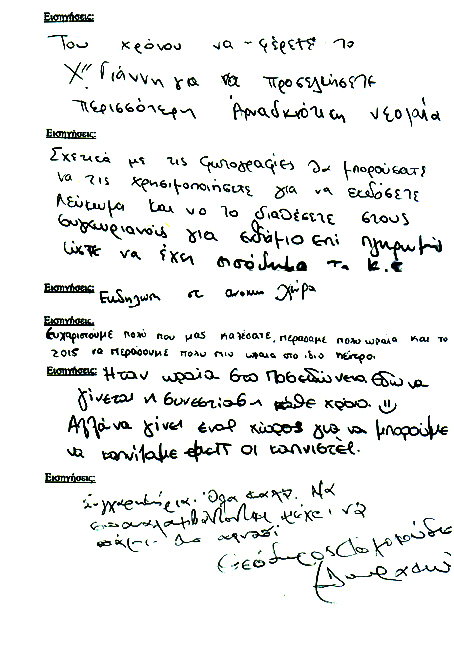 Εισηγήσεις:
Του χρόνου να φέρετε το
Χ" Γιάννη για να προσελκύσετε
περισσότερη Αρναδκιώτικη νεολαία
Εισηγήσεις:
Σχετικά με τις φωτογραφίες θα μπορούσατε
να τις χρησιμοποιήσετε για να εκδόσετε
λεύκωμα και να το διαθέσετε στους
συγχωριανούς για επί πληρωμή
ώστε να έχει εισόδημα το Κ.Σ
Εισηγήσεις: Εκδήλωση σε ανοικτό χώρο
Εισηγήσεις:
Ευχαριστούμε πολύ που μας καλέσατε, περάσαμε πολύ ωραία και το
2015 να περάσουμε πολύ πιο ωραία στο ίδιο κέντρο.
Εισηγήσεις: Ήταν ωραία στο Ποσειδώνεια εδώ να
γίνεται η συνεστίαση κάθε χρόνο. ☺
Αλλά να γίνει ένας χώρος για να μπορούμε
να καπνίζαμε εμείς οι καπνιστές.
Εισηγήσεις:
Συγχαρητήρια. Όλα καλά. Να
επαναλαμβάνονται μέχρι να